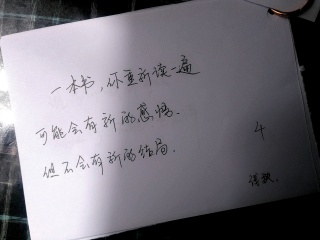 一本书，你重新读一遍
可能会有新的感悟.
但不会有新的结局.